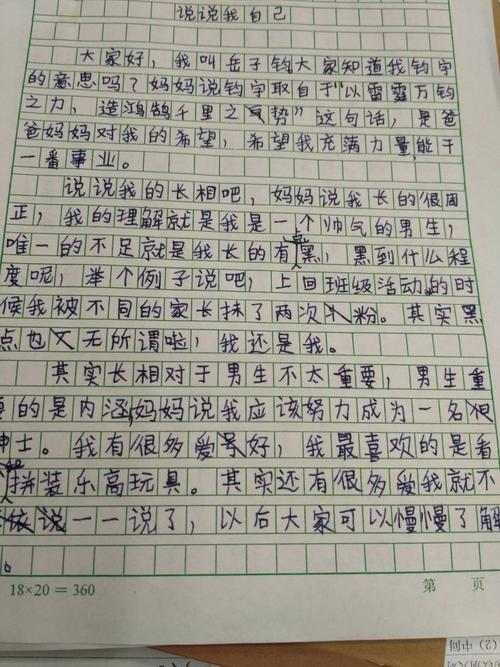 说说我自己
大家好，我叫岳子钧大家知道我钧字
的意思吗？妈妈说钧字取自于“以雷霆万钧
之力，造鸿鹄千里之势”这句话，是爸
爸妈妈对我的希望，希望我充满力量,能干
一番事业。
说说我的长相吧，妈妈说我长的很周
正，我的理解就是我是一个帅气的男生，
唯一的不足就是我长的有点黑，黑到什么程
度呢，举个例子说吧，上回班级活动的时
候我被不同的家长抹了两次粉。其实黑
点也无所谓啦，我还是我。
其实长相对于男生不太重要，男生重
要的是内涵,妈妈说我应该努力成为一名
绅士。我有很多爱好，我最喜欢的是看
和拼装乐高玩具。其实还有很多爱我就不
说一一说了，以后大家可以慢慢了解
。
18×20＝360
第 页
(2) 中间